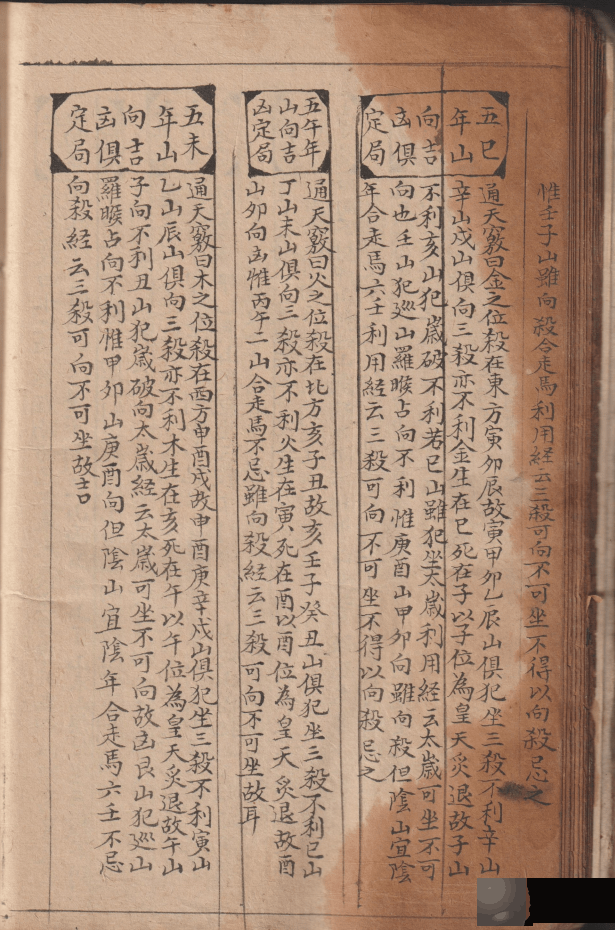 惟壬子山雖向殺合走馬利用経云三殺可向不可坐不得以向殺忌之
五巳
年山
向吉
凶俱
定局
通天竅曰金之位殺在東方寅卯辰故寅甲卯乙辰山俱犯坐三殺不利辛山
辛山戍山俱向三殺亦不利金生在巳死在子以子位為皇天炙退故子山
不利亥山犯歲破不利若巳山雖犯坐太歲利用經云太歲可坐不可
向也壬山犯廵山羅睺占向不利惟庚酉山甲卯向雖向殺但陰山宜陰
年合走馬六壬利用経云三殺可向不可坐不得以向殺忌之
五午年
山向吉
凶定局
通天竅曰火之位殺在北方亥子丑故亥壬子癸丑山俱犯坐三殺不利巳山
丁山未山俱向三殺亦不利火生在寅死在酉以酉位為皇天炙退故酉
山卯向凶惟丙午二山合走馬不忌雖向殺經云三殺可向不可坐故耳
五未
年山
向吉
凶俱
定局
通天竅曰木之位殺在西方申酉戍故申酉庚辛戍山俱犯坐三殺不利寅山
乙山辰山俱向三殺亦不利木生在亥死在午以午位為皇天炙退故午山
子向不利丑山犯歲破向太歲經云太歲可坐不可向故凶艮山犯廵山
羅睺占向不利惟甲卯山庚酉向但陰山宜陰年合走馬六壬不忌
向殺經云三殺可向不可坐故吉